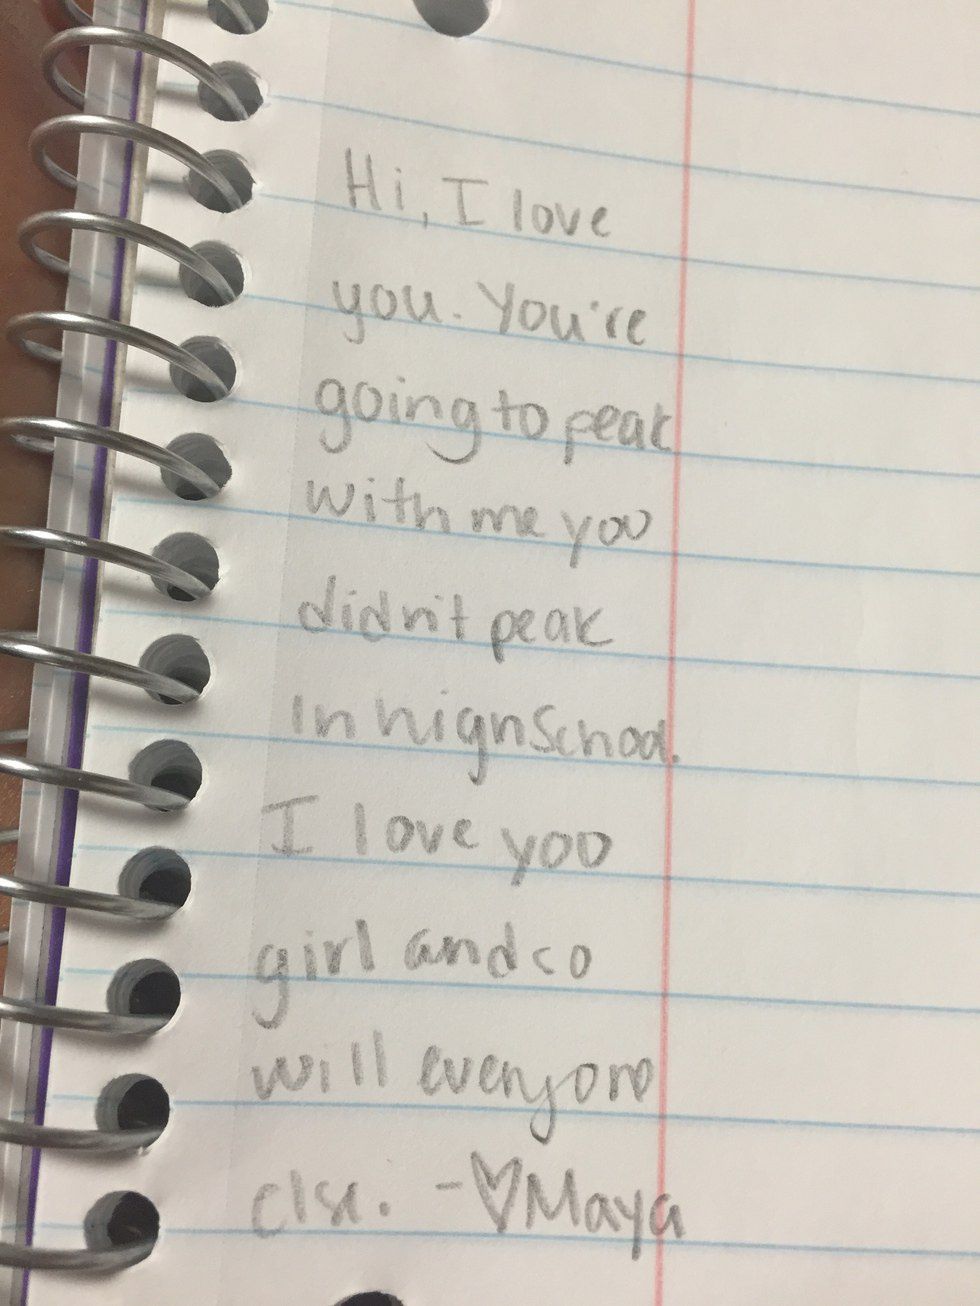 Hi, I love
you. You're
going to peak
with me you
didn't peak
in high school.
I love you
girl and so
will everyone
else. -♡Maya